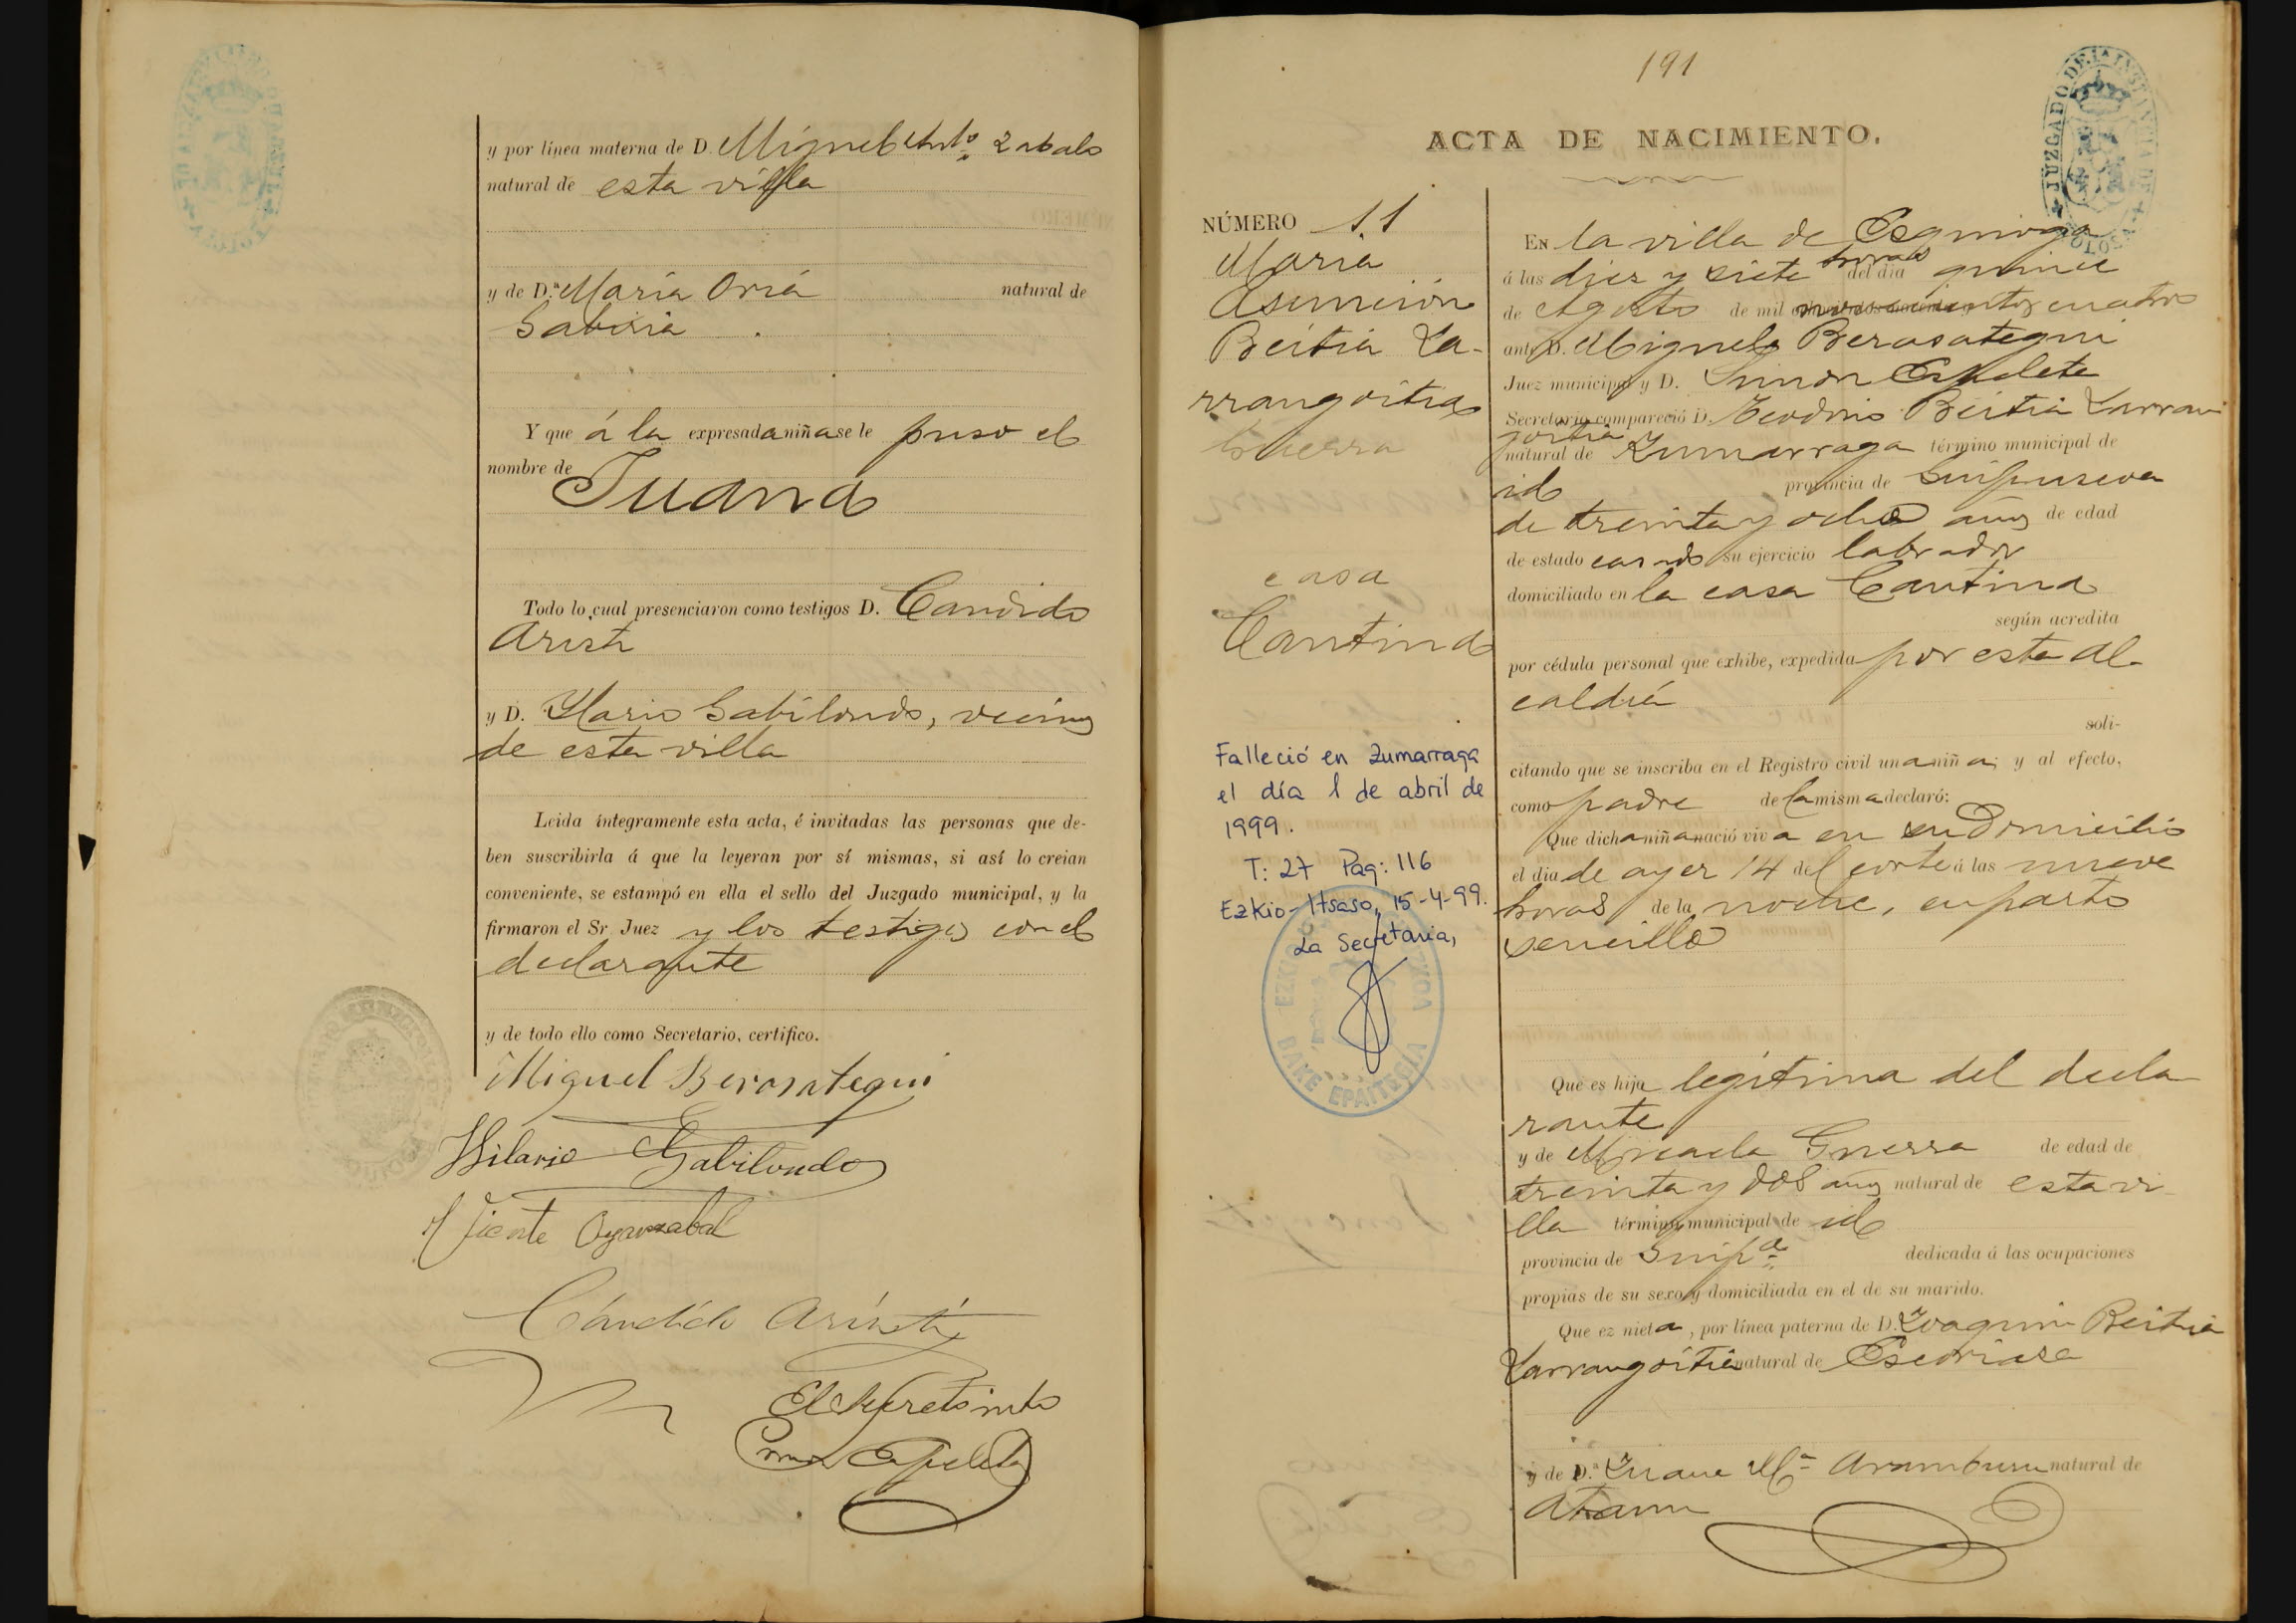 y por línea materna de D. Miguel Antº Zabalo
natural de esta villa
y de D.ª María Oria natural de
Gaviria
Y que á la expresada niña se le puso el
nombre de
Juana
Todo lo cual presenciaron como testigos D. Candido
Aristi
y D. Ylario Gabilondo, vecinos
de esta villa
Leida íntegramente esta acta, é invitadas las personas que de-
ben suscribirla á que la leyeran por sí mismas, si así lo creian
conveniente, se estampó en ella el sello del Juzgado municipal, y la
firmaron el Sr. Juez y los testigos con el
declarante
y de todo ello como Secretario, certifico.
Miguel Berasategui
Hilario Gabilondo
Vicente Oyarzabal
Cándido Aristi
El Secretario
191
ACTA DE NACIMIENTO.
JUZGADO DE 1ª INSTANCIA DE TOLOSA
NÚMERO 11
Maria
Asunción
Beitia La-
rrangoitia
Guerra
casa
Cantina
Falleció en Zumarraga
el día 1 de abril de
1999.
T: 27 Pag: 116
Ezkio-Itsaso, 15-4-99.
La Secretaria,
BAKE EPAITEGIA
EN la villa de Ezquioga
á las diez y siete horas del día quince
de Agosto de mil novecientos cuatro
ante D. Miguel Berasategui
Juez municipal y D. Simon Capelete
Secretario compareció D. Teodoro Beitia Larran
goitia
natural de Zumarraga término municipal de
id provincia de Guipuzcoa
de treinta y ocho años de edad
de estado casado su ejercicio labrador
domiciliado en la casa Cantina
según acredita
por cédula personal que exhibe, expedida por esta Al-
caldía
soli-
citando que se inscriba en el Registro civil una niña; y al efecto,
como padre de la misma declaró:
Que dicha niña nació viva en su domicilio
el día de ayer 14 del corte á las nueve
horas de la noche, en parto
sencillo
Que es hija legítima del decla
rante
y de Micaela Guerra de edad de
treinta y dos años natural de esta vi-
lla término municipal de id
provincia de Guipª dedicada á las ocupaciones
propias de su sexo y domiciliada en el de su marido.
Que ez nieta, por línea paterna de D. Joaquin Beitia
Larrangoitia natural de Escoriaza
y de D.ª Juana Mª Aramburu natural de
Ataun